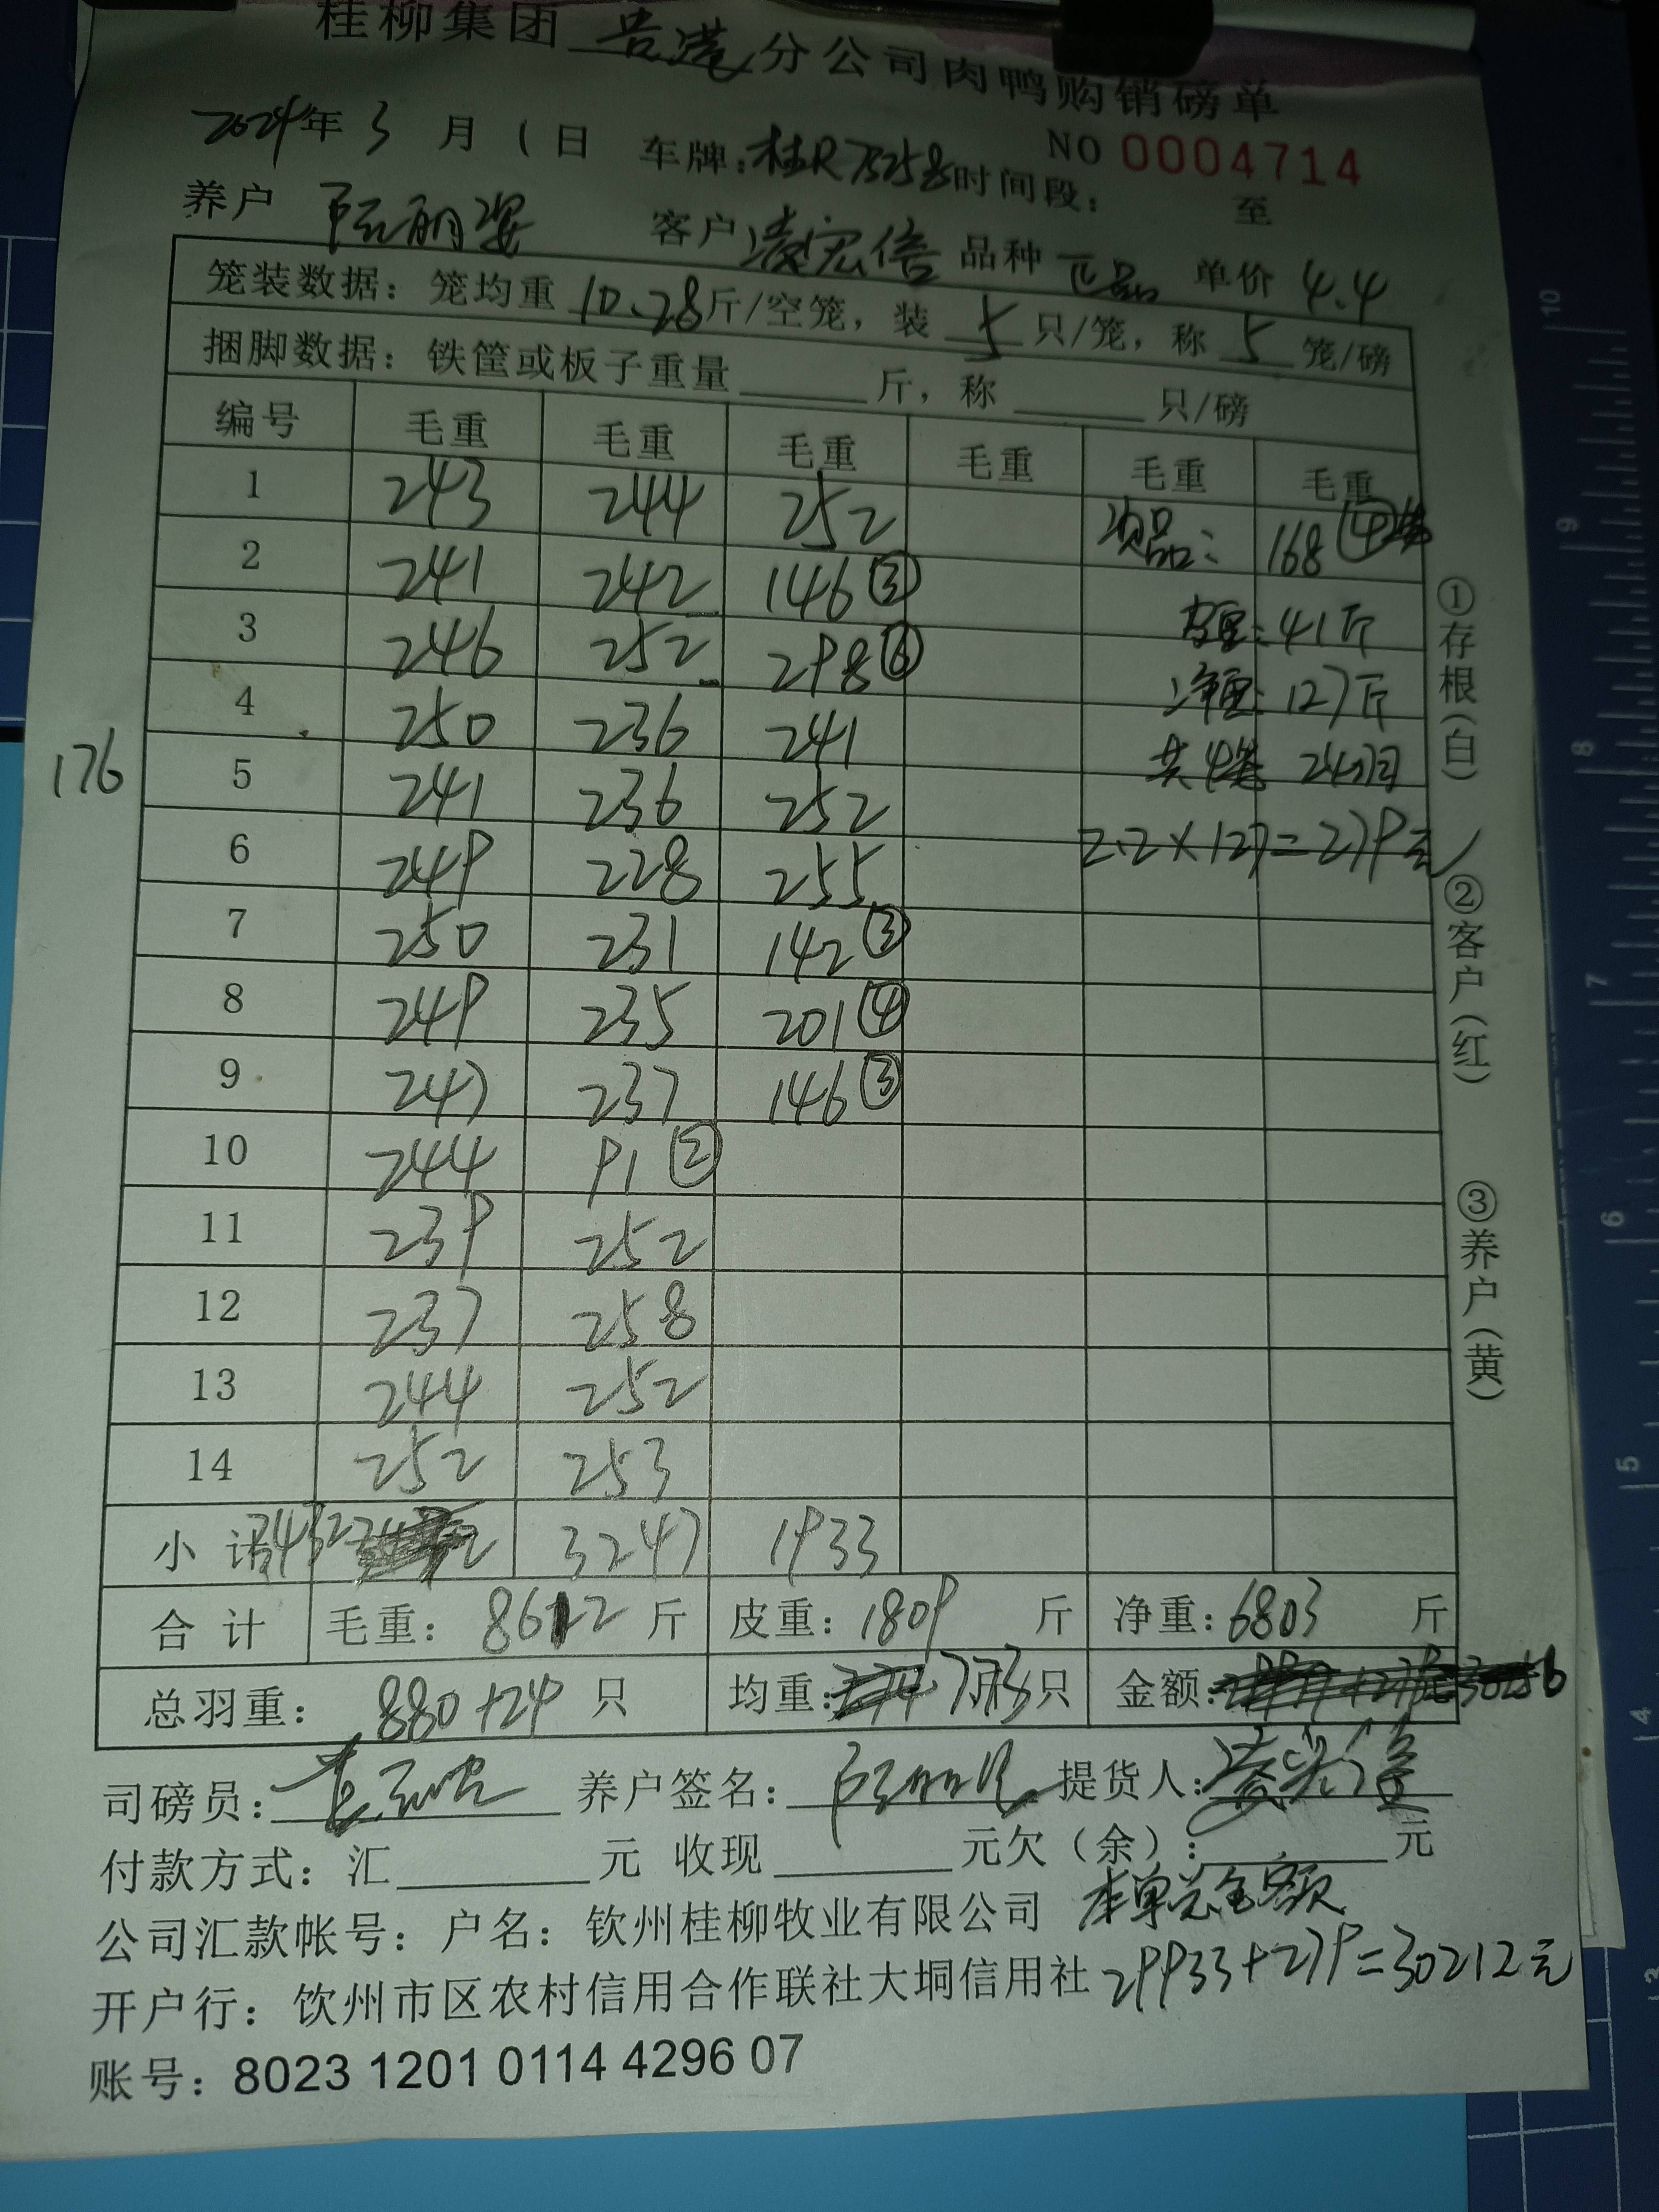 桂柳集团 贵港 分公司肉鸭购销磅单
2024年 3 月 1 日 车牌：桂R75258 时间段： 至
NO 0004714
养户 客户 凌宏倍 品种 正品 单价 4.4
笼装数据：笼均重 10.28 斤/空笼，装 5 只/笼，称 5 笼/磅
捆脚数据：铁筐或板子重量 斤，称 只/磅
编号 毛重 毛重 毛重 毛重 毛重 毛重
1 243 244 252 次品： 168 ④笼
2 241 242 146 ③
3 246 252 298 ⑥ 皮重：41斤
4 250 236 241 净重：127斤
5 241 236 252 共4笼 24羽
6 249 228 255 2.2×127=279元
7 250 231 142 ③
8 249 235 201 ④
9 247 237 146 ③
10 244 91 ②
11 239 252
12 237 258
13 244 252
14 252 253
176
小 计 3432 3247 1933
合 计 毛重： 8612 斤 皮重：1809 斤 净重：6803 斤
总羽重： 880+24 只 均重：7.73 只 金额：
司磅员： 养户签名： 提货人：
付款方式：汇 元 收现 元欠（余）： 元
公司汇款帐号：户名：钦州桂柳牧业有限公司 本单总金额
开户行：钦州市区农村信用合作联社大垌信用社 29933+279=30212元
账号：8023 1201 0114 4296 07
①存根（白）
②客户（红）
③养户（黄）
10
9
8
7
6
5
4
3